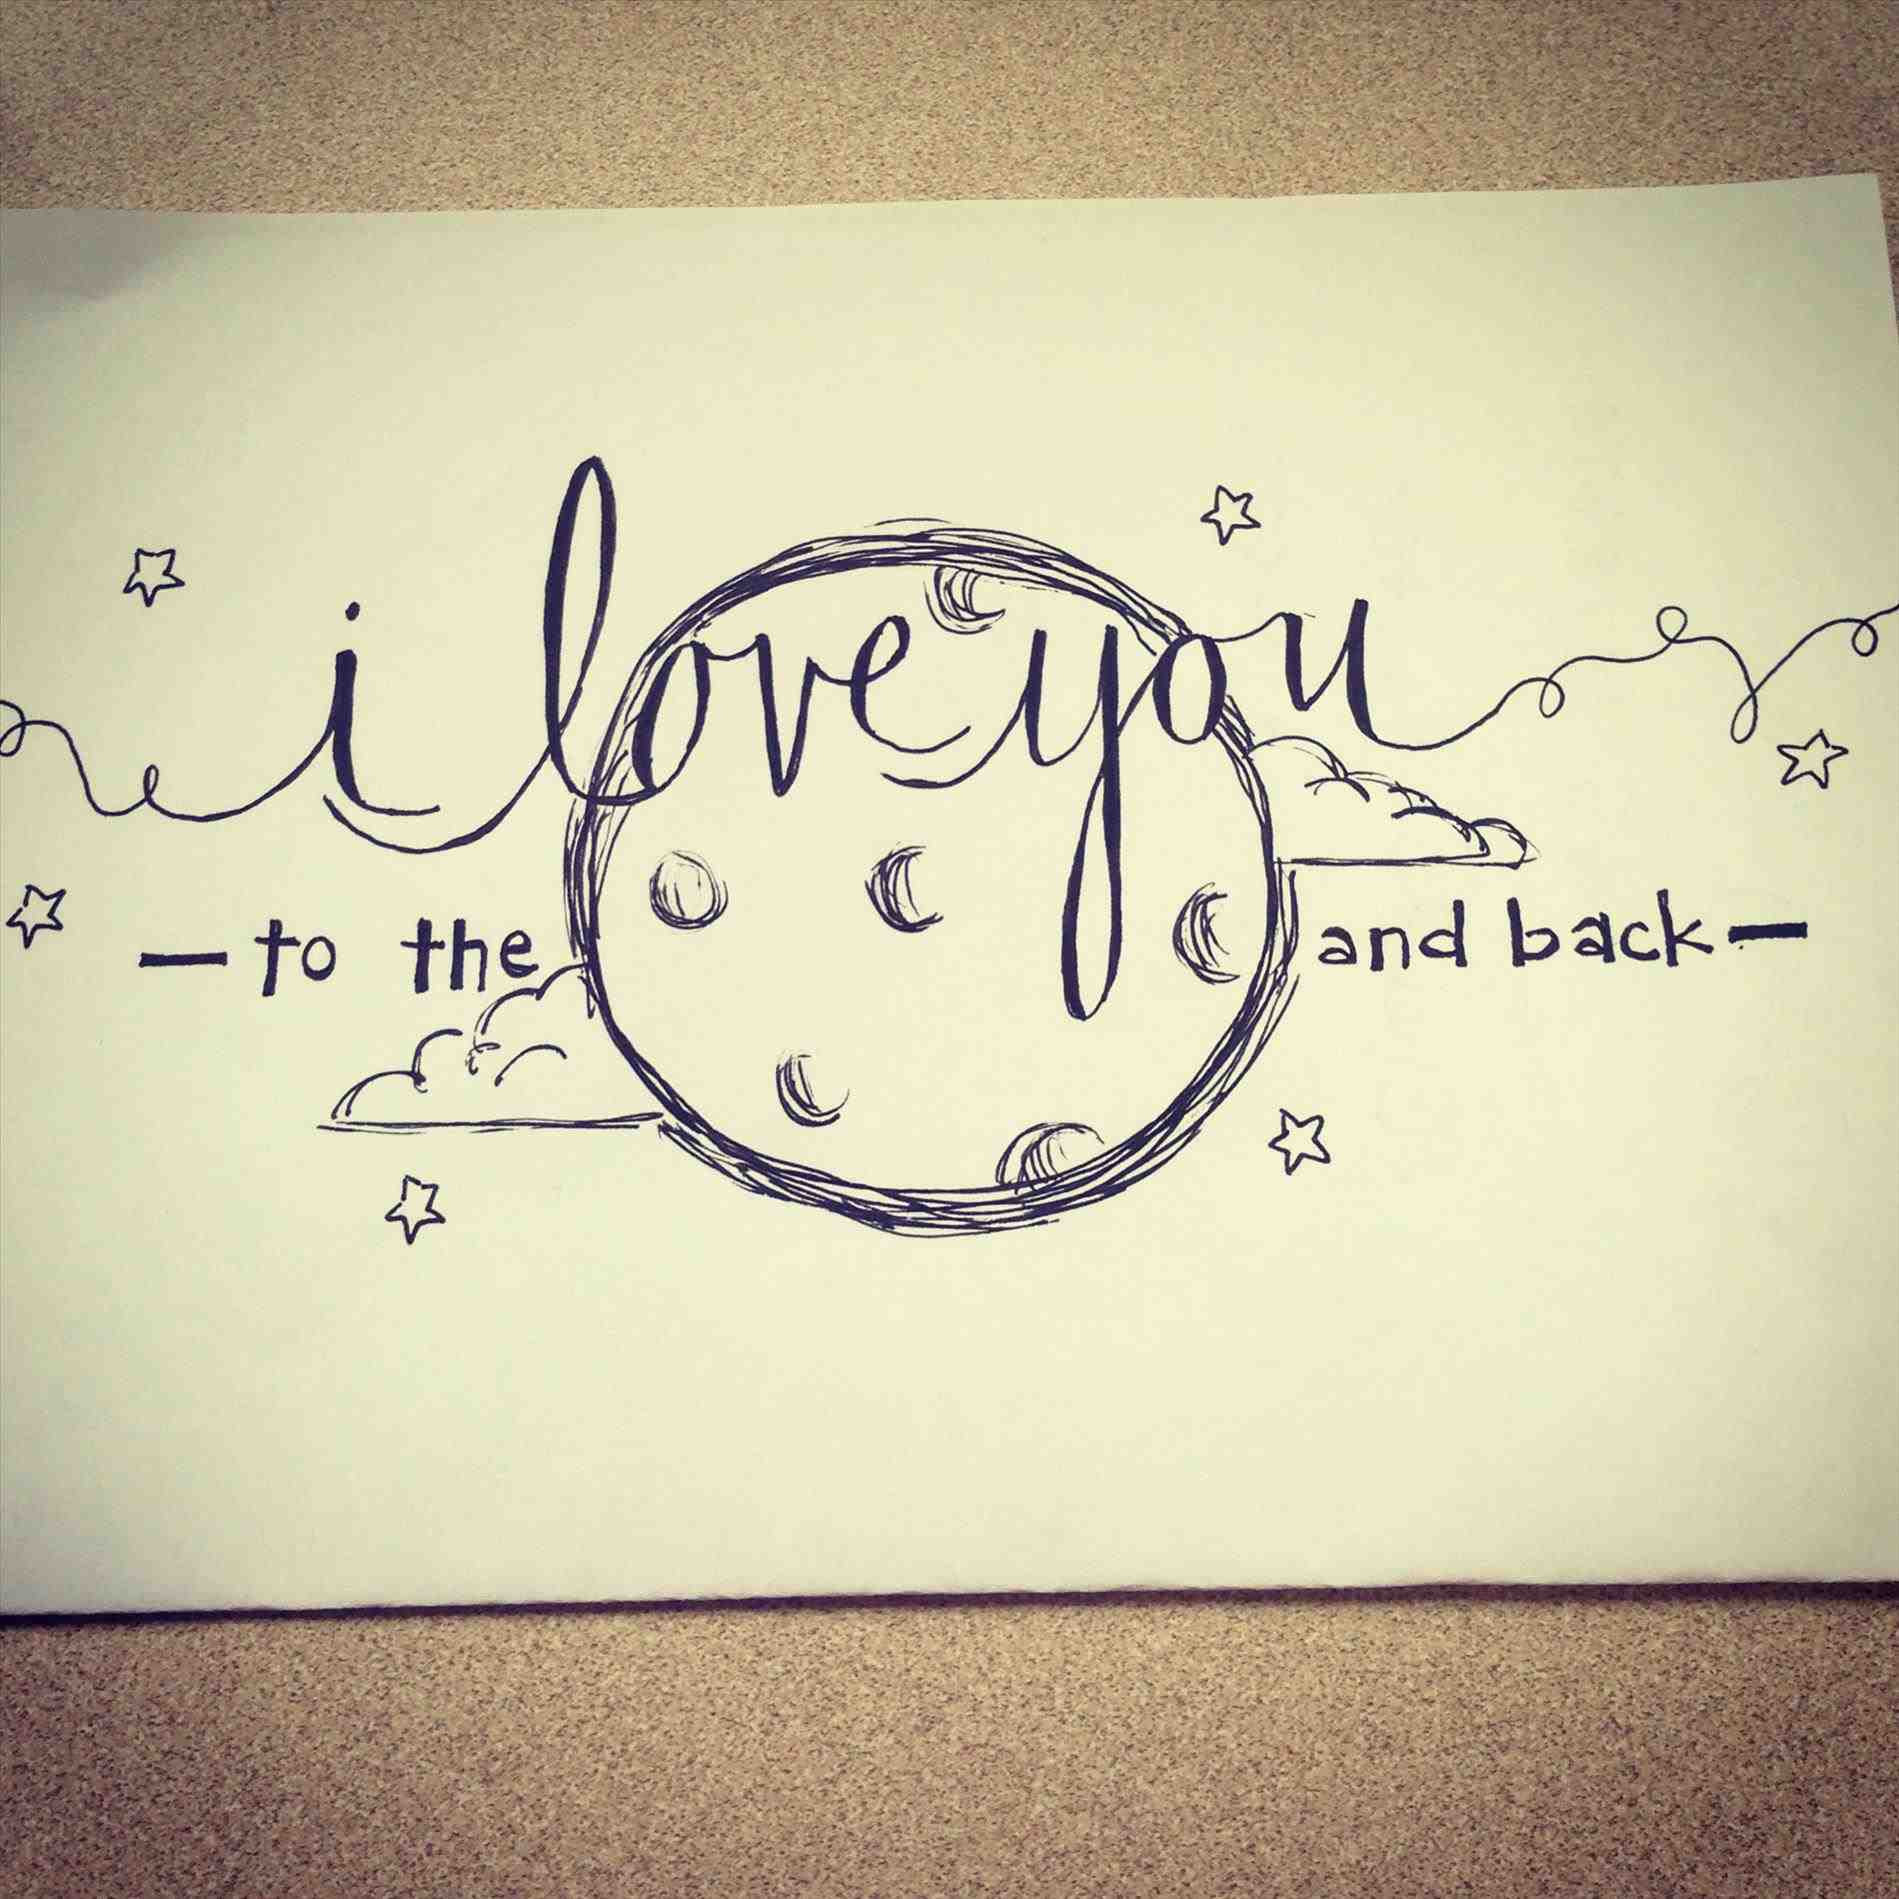 i love you
—to the and back—